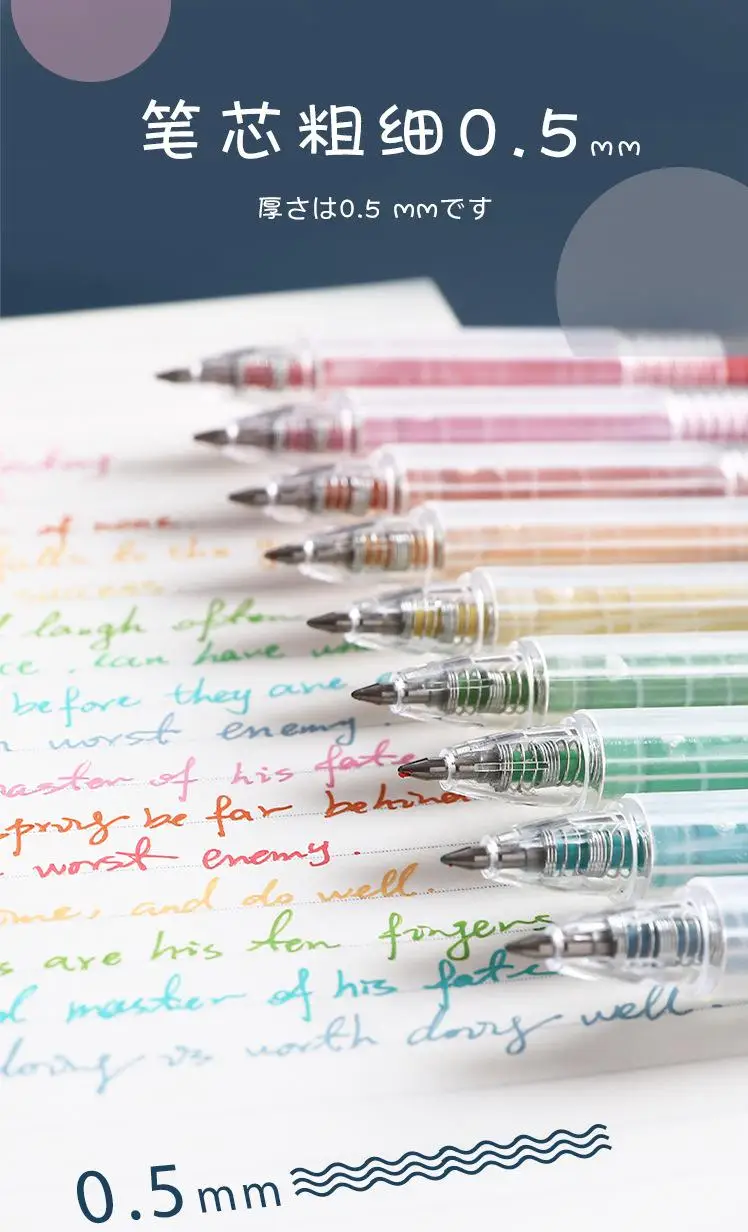 笔芯粗细0.5mm
厚さは0.5 mmです
of none
to the
laugh often
can have
before they are
worst enemy.
master of his fate
spring be far behind
worst enemy.
ome, and do well.
s are his ten fingers
master of his fate
doing is worth doing well.
0.5mm